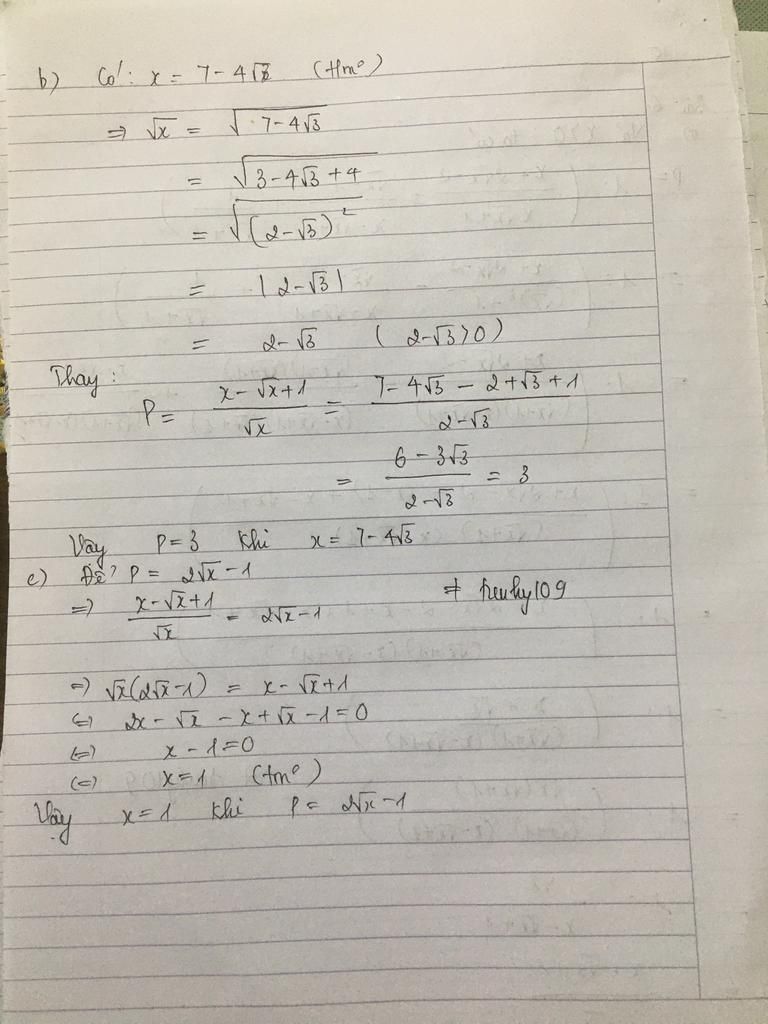 b) Có: x = 7 - 4√3 (tmđ)
=> √x = √(7 - 4√3)
= √(3 - 4√3 + 4)
= √((2 - √3)²)
= |2 - √3|
= 2 - √3 (2 - √3 > 0)
Thay:
P = (x - √x + 1)/√x = (7 - 4√3 - 2 + √3 + 1)/(2 - √3)
= (6 - 3√3)/(2 - √3) = 3
Vậy P = 3 khi x = 7 - 4√3
c) Để P = 2√x - 1
=> (x - √x + 1)/√x = 2√x - 1
=> √x(2√x - 1) = x - √x + 1
<=> 2x - √x - x + √x - 1 = 0
<=> x - 1 = 0
<=> x = 1 (tmđ)
Vậy x = 1 khi P = 2√x - 1